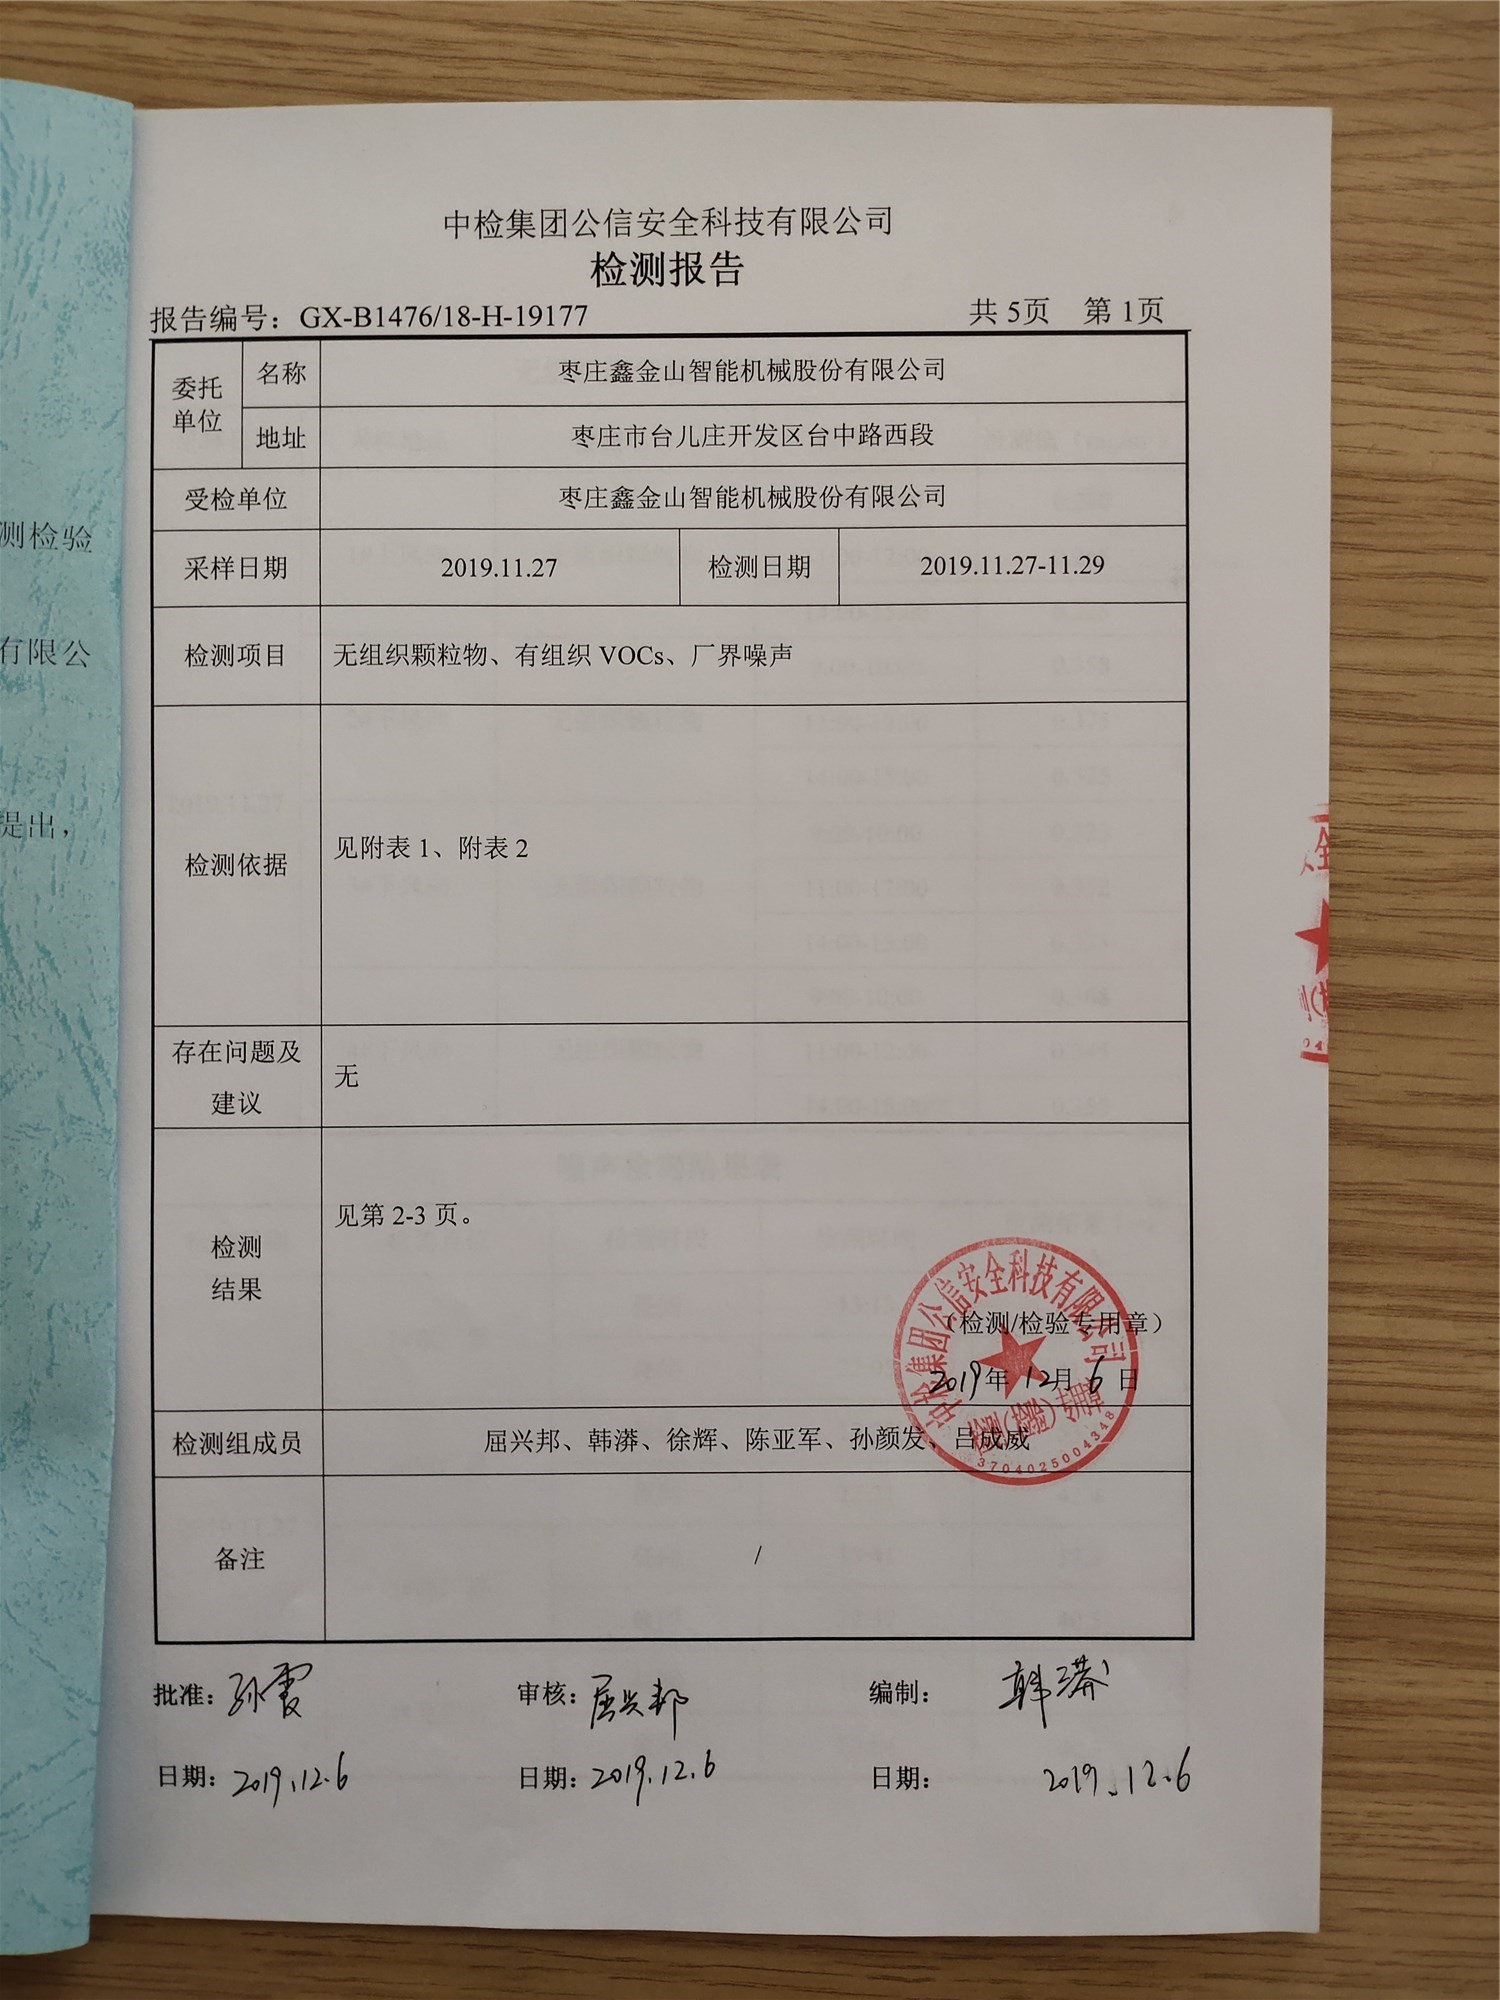 测检验
有限公
提出，
中检集团公信安全科技有限公司
检测报告
报告编号：GX-B1476/18-H-19177 共 5页 第 1页
委托单位 名称 枣庄鑫金山智能机械股份有限公司
地址 枣庄市台儿庄开发区台中路西段
受检单位 枣庄鑫金山智能机械股份有限公司
采样日期 2019.11.27 检测日期 2019.11.27-11.29
检测项目 无组织颗粒物、有组织 VOCs、厂界噪声
检测依据 见附表 1、附表 2
存在问题及建议 无
检测结果 见第 2-3 页。
中检集团公信安全科技有限公司
（检测/检验专用章）
2019年 12月 6 日
检测(检验)专用章
3704025004348
检测组成员 屈兴邦、韩漭、徐辉、陈亚军、孙颜发、吕成威
备注 /
批准：孙霞 审核：屈兴邦 编制：韩漭
日期：2019.12.6 日期：2019.12.6 日期：2019.12.6